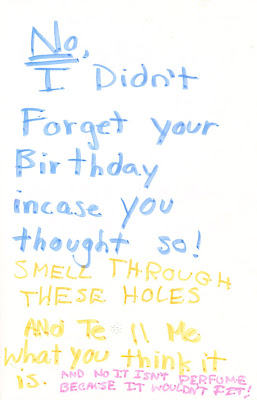 No,
I Didn't
Forget your
Birthday
incase you
thought so!
SMELL THROUGH
THESE HOLES
ANd Te ll Me
what you think it
is. AND NO IT ISN'T PERFUME
BECAUSE IT WOULDN'T FIT!